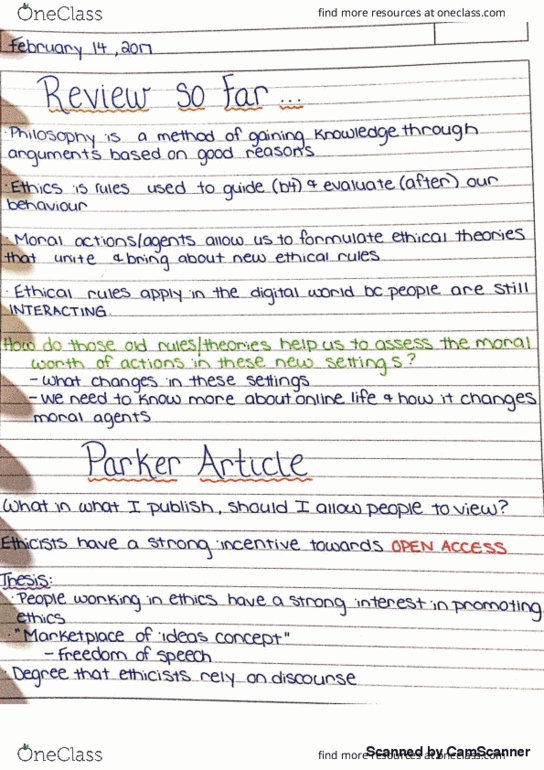 OneClass
find more resources at oneclass.com
February 14, 2017
Review so far ...
· Philosophy is a method of gaining knowledge through
arguments based on good reasons
· Ethics is rules used to guide (b4) & evaluate (after) our
behaviour
· Moral actions/agents allow us to formulate ethical theories
that unite & bring about new ethical rules
· Ethical rules apply in the digital world bc people are still
INTERACTING.
How do those old rules/theories help us to assess the moral
worth of actions in these new settings?
- what changes in these settings
- we need to know more about online life & how it changes
moral agents
Parker Article
What in what I publish, should I allow people to view?
Ethicists have a strong incentive towards OPEN ACCESS
Thesis:
· People working in ethics have a strong interest in promoting
ethics
· "Marketplace of ideas concept"
- Freedom of speech
· Degree that ethicists rely on discourse
OneClass
find more resources at oneclass.com
Scanned by CamScanner